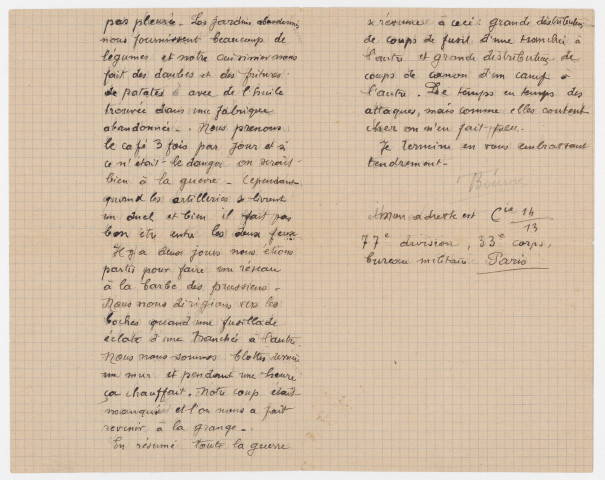 pas pleurée. Les jardins abandonnés
nous fournissent beaucoup de
légumes et notre cuisinier nous
fait des daubes et des fritures
de patates avec de l'huile
trouvée dans une fabrique
abandonnée. Nous prenons
le café 3 fois par jour et si
ce n'était le danger on serait
bien à la guerre - Cependant
quand les artilleries se livrent
un duel et bien il fait pas
bon être entre les deux feux.
Il y a deux jours nous étions
partis pour faire un réseau
à la barbe des prussiens -
Nous nous dirigions vers les
boches quand une fusillade
éclate d'une tranchée à l'autre.
Nous nous sommes blottis derrière
un mur et pendant une heure
ça chauffait. Notre coup était
manqué et l'on nous a fait
revenir à la grange -
En résumé toute la guerre
se résume à ceci: grande distribution
de coups de fusil d'une tranchée à
l'autre et grande distribution de
coups de canon d'un camp à
l'autre. De temps en temps des
attaques, mais comme elles coutent
cher on n'en fait peu.
Je termine en vous embrassant
tendrement -
mon adresse est Cie 14/13
77e division, 33e corps,
bureau militaire Paris